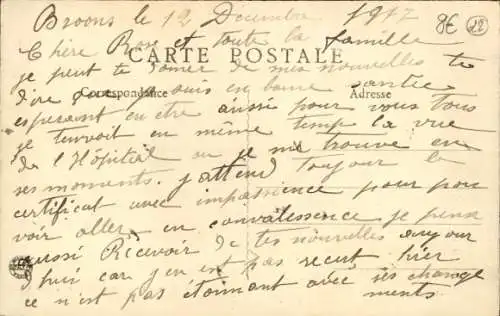 Broons le 12 Decembre 1917
8€ 22
Chère Rose et toute la famille
CARTE POSTALE
je peut te doner de mes nouvelles te
dire que je suis en bonne santée
Correspondance Adresse
esperant en etre aussie pour vous tous
je tenvoit en même temp la vue
de l'Hôpital ou je me trouve en
ses moments. j'attend toujour le
certificat avec impatience pour pou
voir aller en convalessence je pense
aussi Recevoir de tes nouvelles aujour
d'hui car j'en est pas recut hier
ce n'est pas étoinant avec ses change
ments.